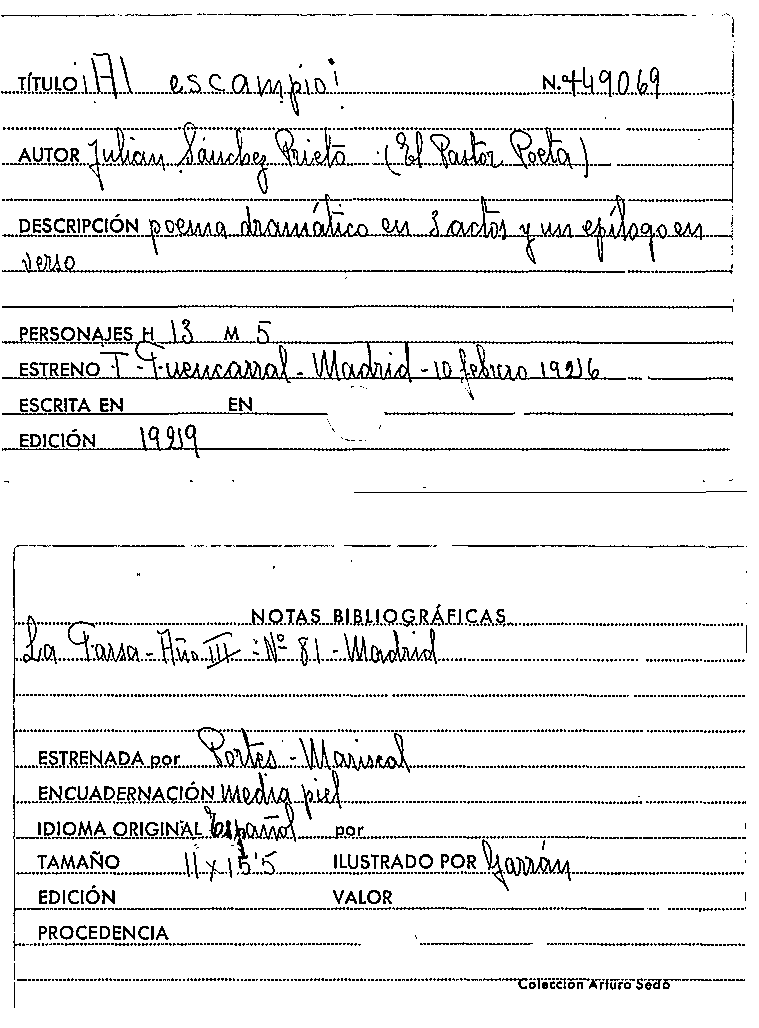 TÍTULO ¡Al escampío! N.º 449069
AUTOR Julian Sánchez Prieto (El Pastor Poeta)
DESCRIPCIÓN poema dramático en 3 actos y un epílogo en
verso
PERSONAJES H 13 M 5
ESTRENO T. Fuencarral - Madrid - 10 febrero 1926
ESCRITA EN EN
EDICIÓN 1929
NOTAS BIBLIOGRÁFICAS
La Farsa - Año III - Nº 81 - Madrid
ESTRENADA por Portes - Mariscal
ENCUADERNACIÓN media piel
IDIOMA ORIGINAL Español por
TAMAÑO 11 x 15'5 ILUSTRADO POR Garrán
EDICIÓN VALOR
PROCEDENCIA
Colección Arturo Sedó